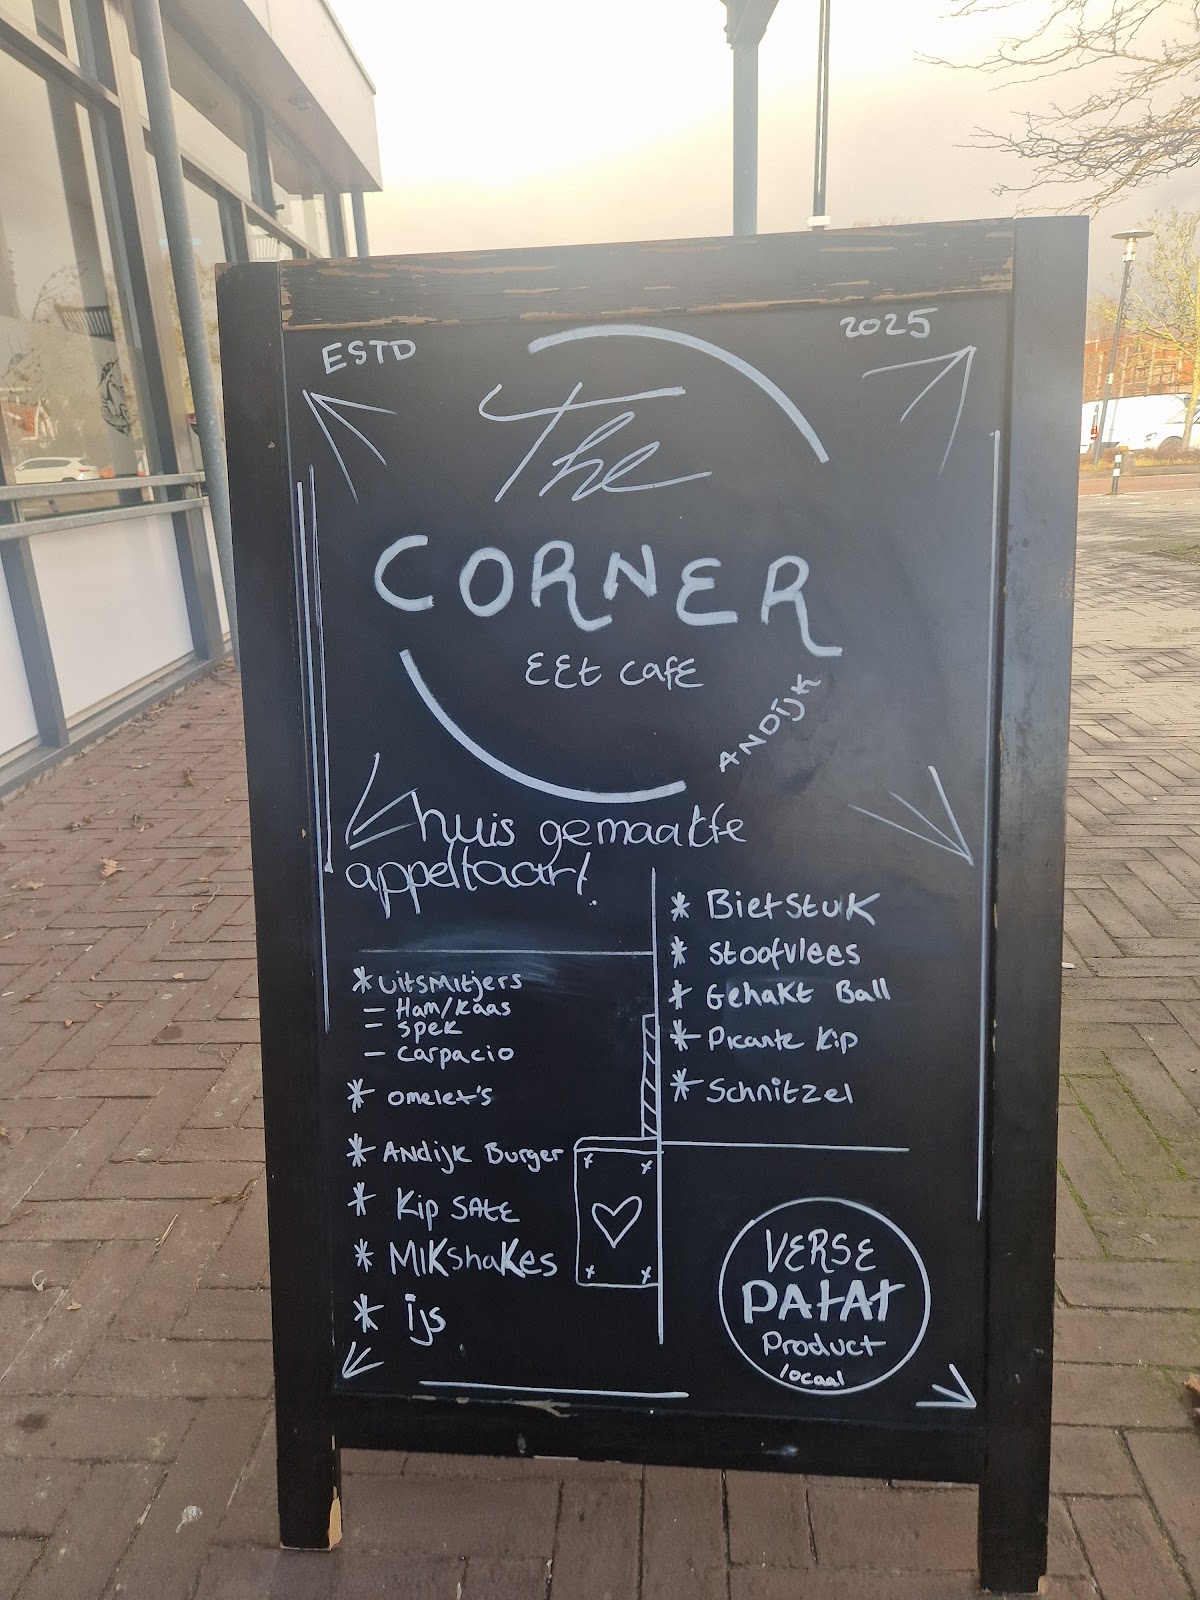 ESTD
2025
The
CORNER
EEt CafE
ANDIJK
huis gemaakte
appeltaart!
* Uitsmitjers
- Ham/Kaas
- Spek
- Carpacio
* omelet's
* Andijk Burger
* Kip SATE
* MIKshakes
* ijs
* Bietstuk
* Stoofvlees
* Gehakt Ball
* Picante Kip
* Schnitzel
VERSE
PATAT
Product
locaal